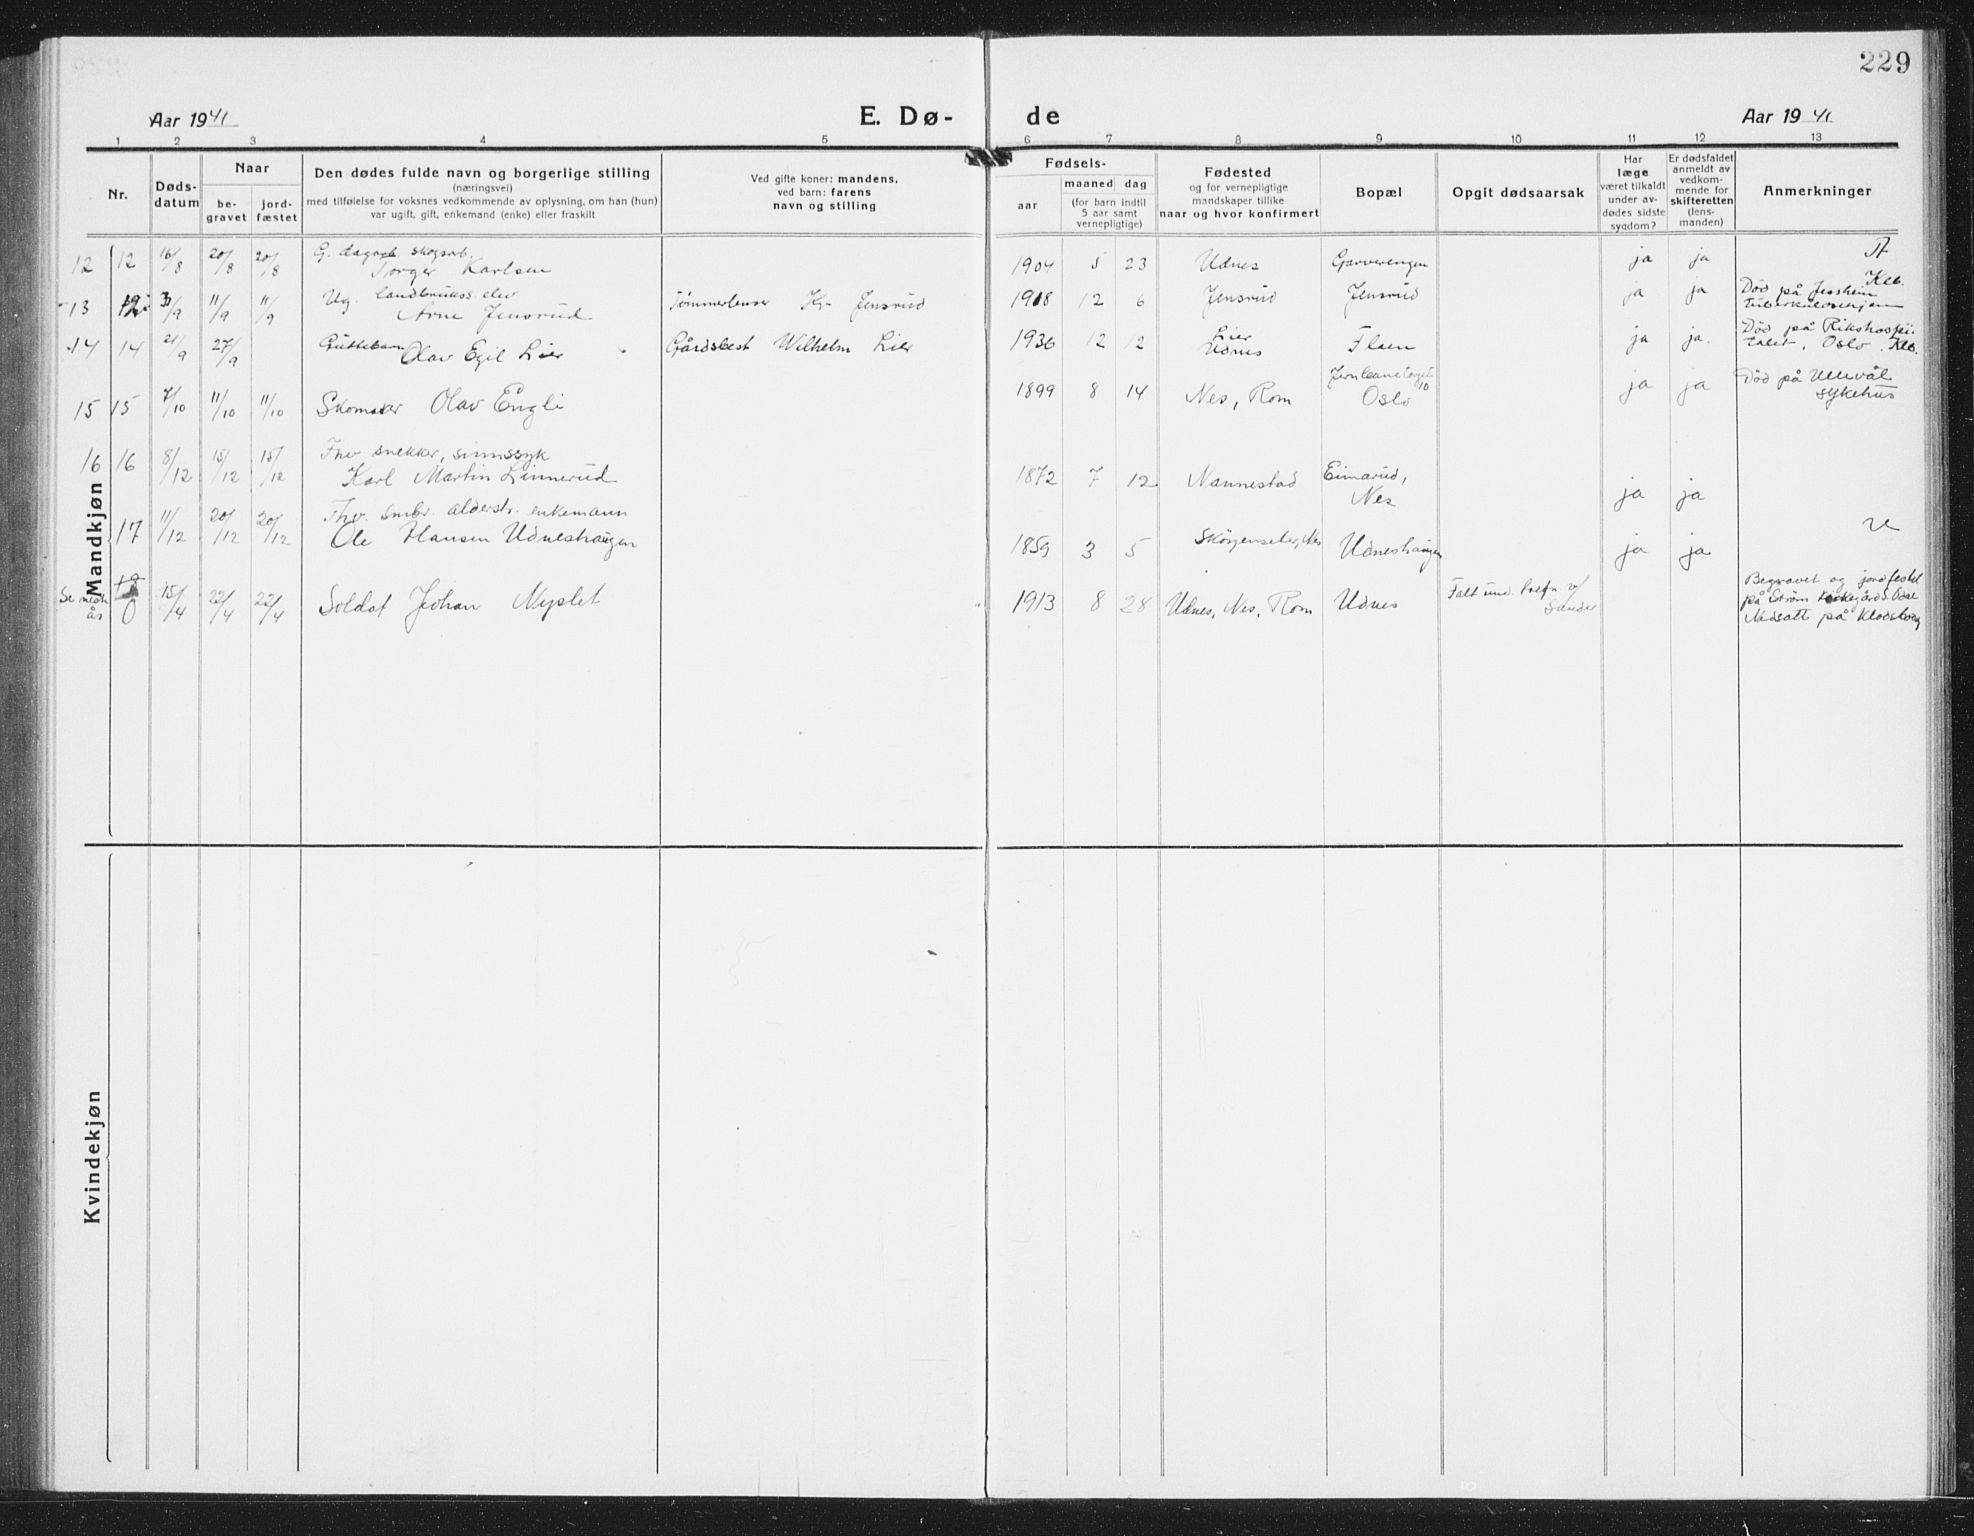 229
Aar 1941 E. Dø- de Aar 1941
1 2 3 4 5 6 7 8 9 10 11 12 13
Nr.
Døds-
datum
Naar
be-
gravet
jord-
fæstet
Den dødes fulde navn og borgerlige stilling
(næringsvei)
med tilføielse for voksnes vedkommende av oplysning, om han (hun)
var ugift, gift, enkemand (enke) eller fraskilt
Ved gifte koner: mandens,
ved barn: farens
navn og stilling
Fødsels-
aar
maaned dag
(for barn indtil
5 aar samt
vernepligtige)
Fødested
og for vernepligtige
mandskaper tillike
naar og hvor konfirmert
Bopæl
Opgit dødsaarsak
Har
læge
været tilkaldt
under av-
dødes sidste
sygdom?
Er dødsfaldet
anmeldt av
vedkom-
mende for
skifteretten
(lens-
manden)
Anmerkninger
Mandkjøn
12 12 16/8 20/8 20/8 G. skogsarb.
Torger Karlsen 1904 5 23 Udnes Garverengen ja ja
13 3/9 11/9 11/9 Ug. landbrukss. elev
Arne Jensrud Tømmerlenser Kr. Jensrud 1918 12 6 Jensrud Jensrud ja ja Død på Jessheim
tuberkulosehjem
14 14 21/9 27/9 Guttebarn Olav Egil Lier Gårdsbest Wilhelm Lier 1936 12 12 Lier
Udnes Flaen ja ja. Død på Rikshospi-
talet, Oslo. Kleb.
15 15 7/10 11/10 11/10 Skomaker Olav Engli 1899 8 14 Nes, Rom Jernbanetorget
10
Oslo ja ja Død på Ullevål
sykehus
16 16 8/12 15/12 15/12 Fhv snekker, sinnssyk
Karl Martin Linnerud 1872 7 12 Nannestad Eimarud,
Nes ja ja
17 11/12 20/12 20/12 Fhv. smbr. alderstr. enkemann
Ole Hansen Udneshaugen 1859 3 5 Nes Udneshaugen ja ja
Se neste
år
18
0 15/4 22/4 22/4 Soldat Johan Nyslet 1913 8 28 Udnes, Nes, Rom Udnes Falt und. trefn v/
Sander Begravet og jordfestet
på Strøm kirkegård S. Odal
Nedsatt på
Kvindekjøn